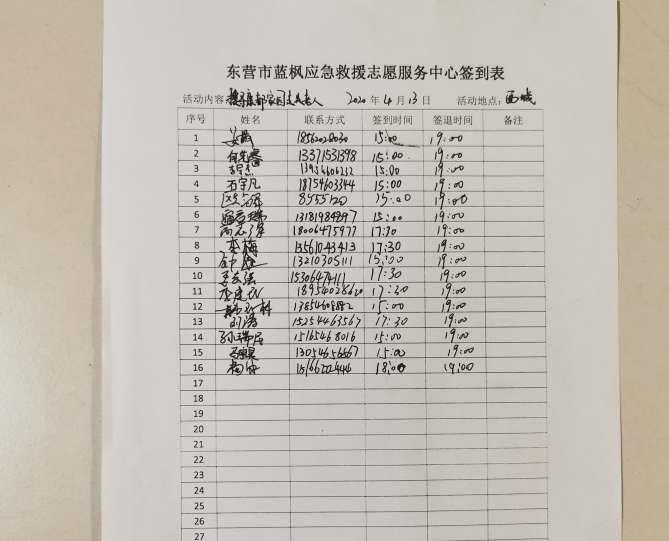 东营市蓝枫应急救援志愿服务中心签到表
活动内容: 家园 老人 2020 年 4 月 13 日 活动地点: 西城
序号 姓名 联系方式 签到时间 签退时间 备注
1 18562028030 15:00 19:00
2 13371531398 15:00 19:00
3 13954606232 15:00 19:00
4 石宇凡 18754603344 15:00 19:00
5 8555120 15:00 19:00
6 13181984897 15:00 19:00
7 18006475977 17:30 19:00
8 李梅 13561043413 17:30 19:00
9 13210305111 15:00 19:00
10 15306474111 17:30 19:00
11 18954028620 17:30 19:00
12 13854608882 15:00 19:00
13 刘涛 15254463567 17:30 19:00
14 孙瑞居 15165468016 15:00 19:00
15 13054656567 15:00 19:00
16 15166202444 18:00 19:00
17
18
19
20
21
22
23
24
25
26
27